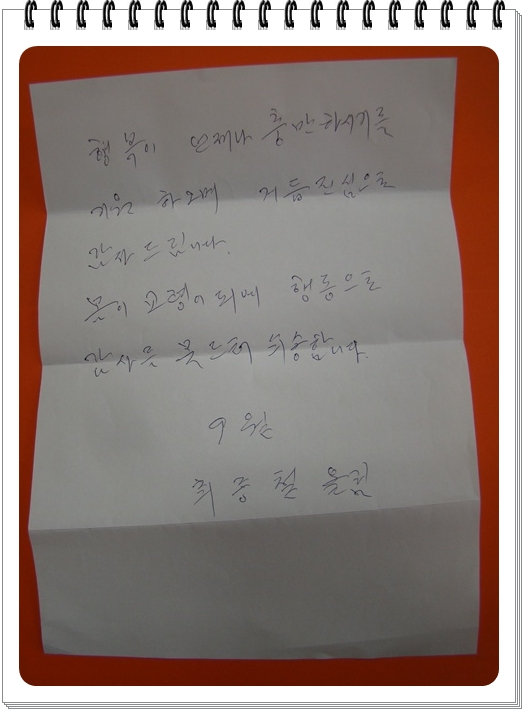 행복이 언제나 충만하시기를
기원 하오며 거듭진심으로
감사 드립니다.
몸이 고령이 되에 행동으로
감사를 못드려 죄송합니다.
9월
최종철 올림